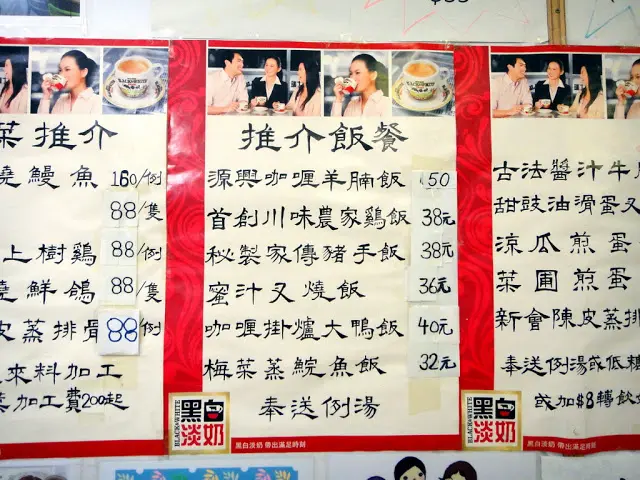 菜推介
燒鰻魚 160/例
88/隻
上樹鷄 88/例
燒鮮鴿 88/隻
皮蒸排骨 88例
來料加工
加工費200起
推介飯餐
源興咖喱羊腩飯 50
首創川味農家鷄飯 38元
秘製家傳豬手飯 38元
蜜汁叉燒飯 36元
咖喱掛爐大鴨飯 40元
梅菜蒸鯇魚飯 32元
奉送例湯
BLACK&WHITE
黑白淡奶
黑白淡奶 帶出滿足時刻
古法醬汁牛
甜豉油滑蛋叉
涼瓜煎蛋
菜圃煎蛋
新會陳皮蒸排
奉送例湯或低糖
或加$8轉飲
BLACK&WHITE
黑白淡奶
黑白淡奶 帶出滿足時刻